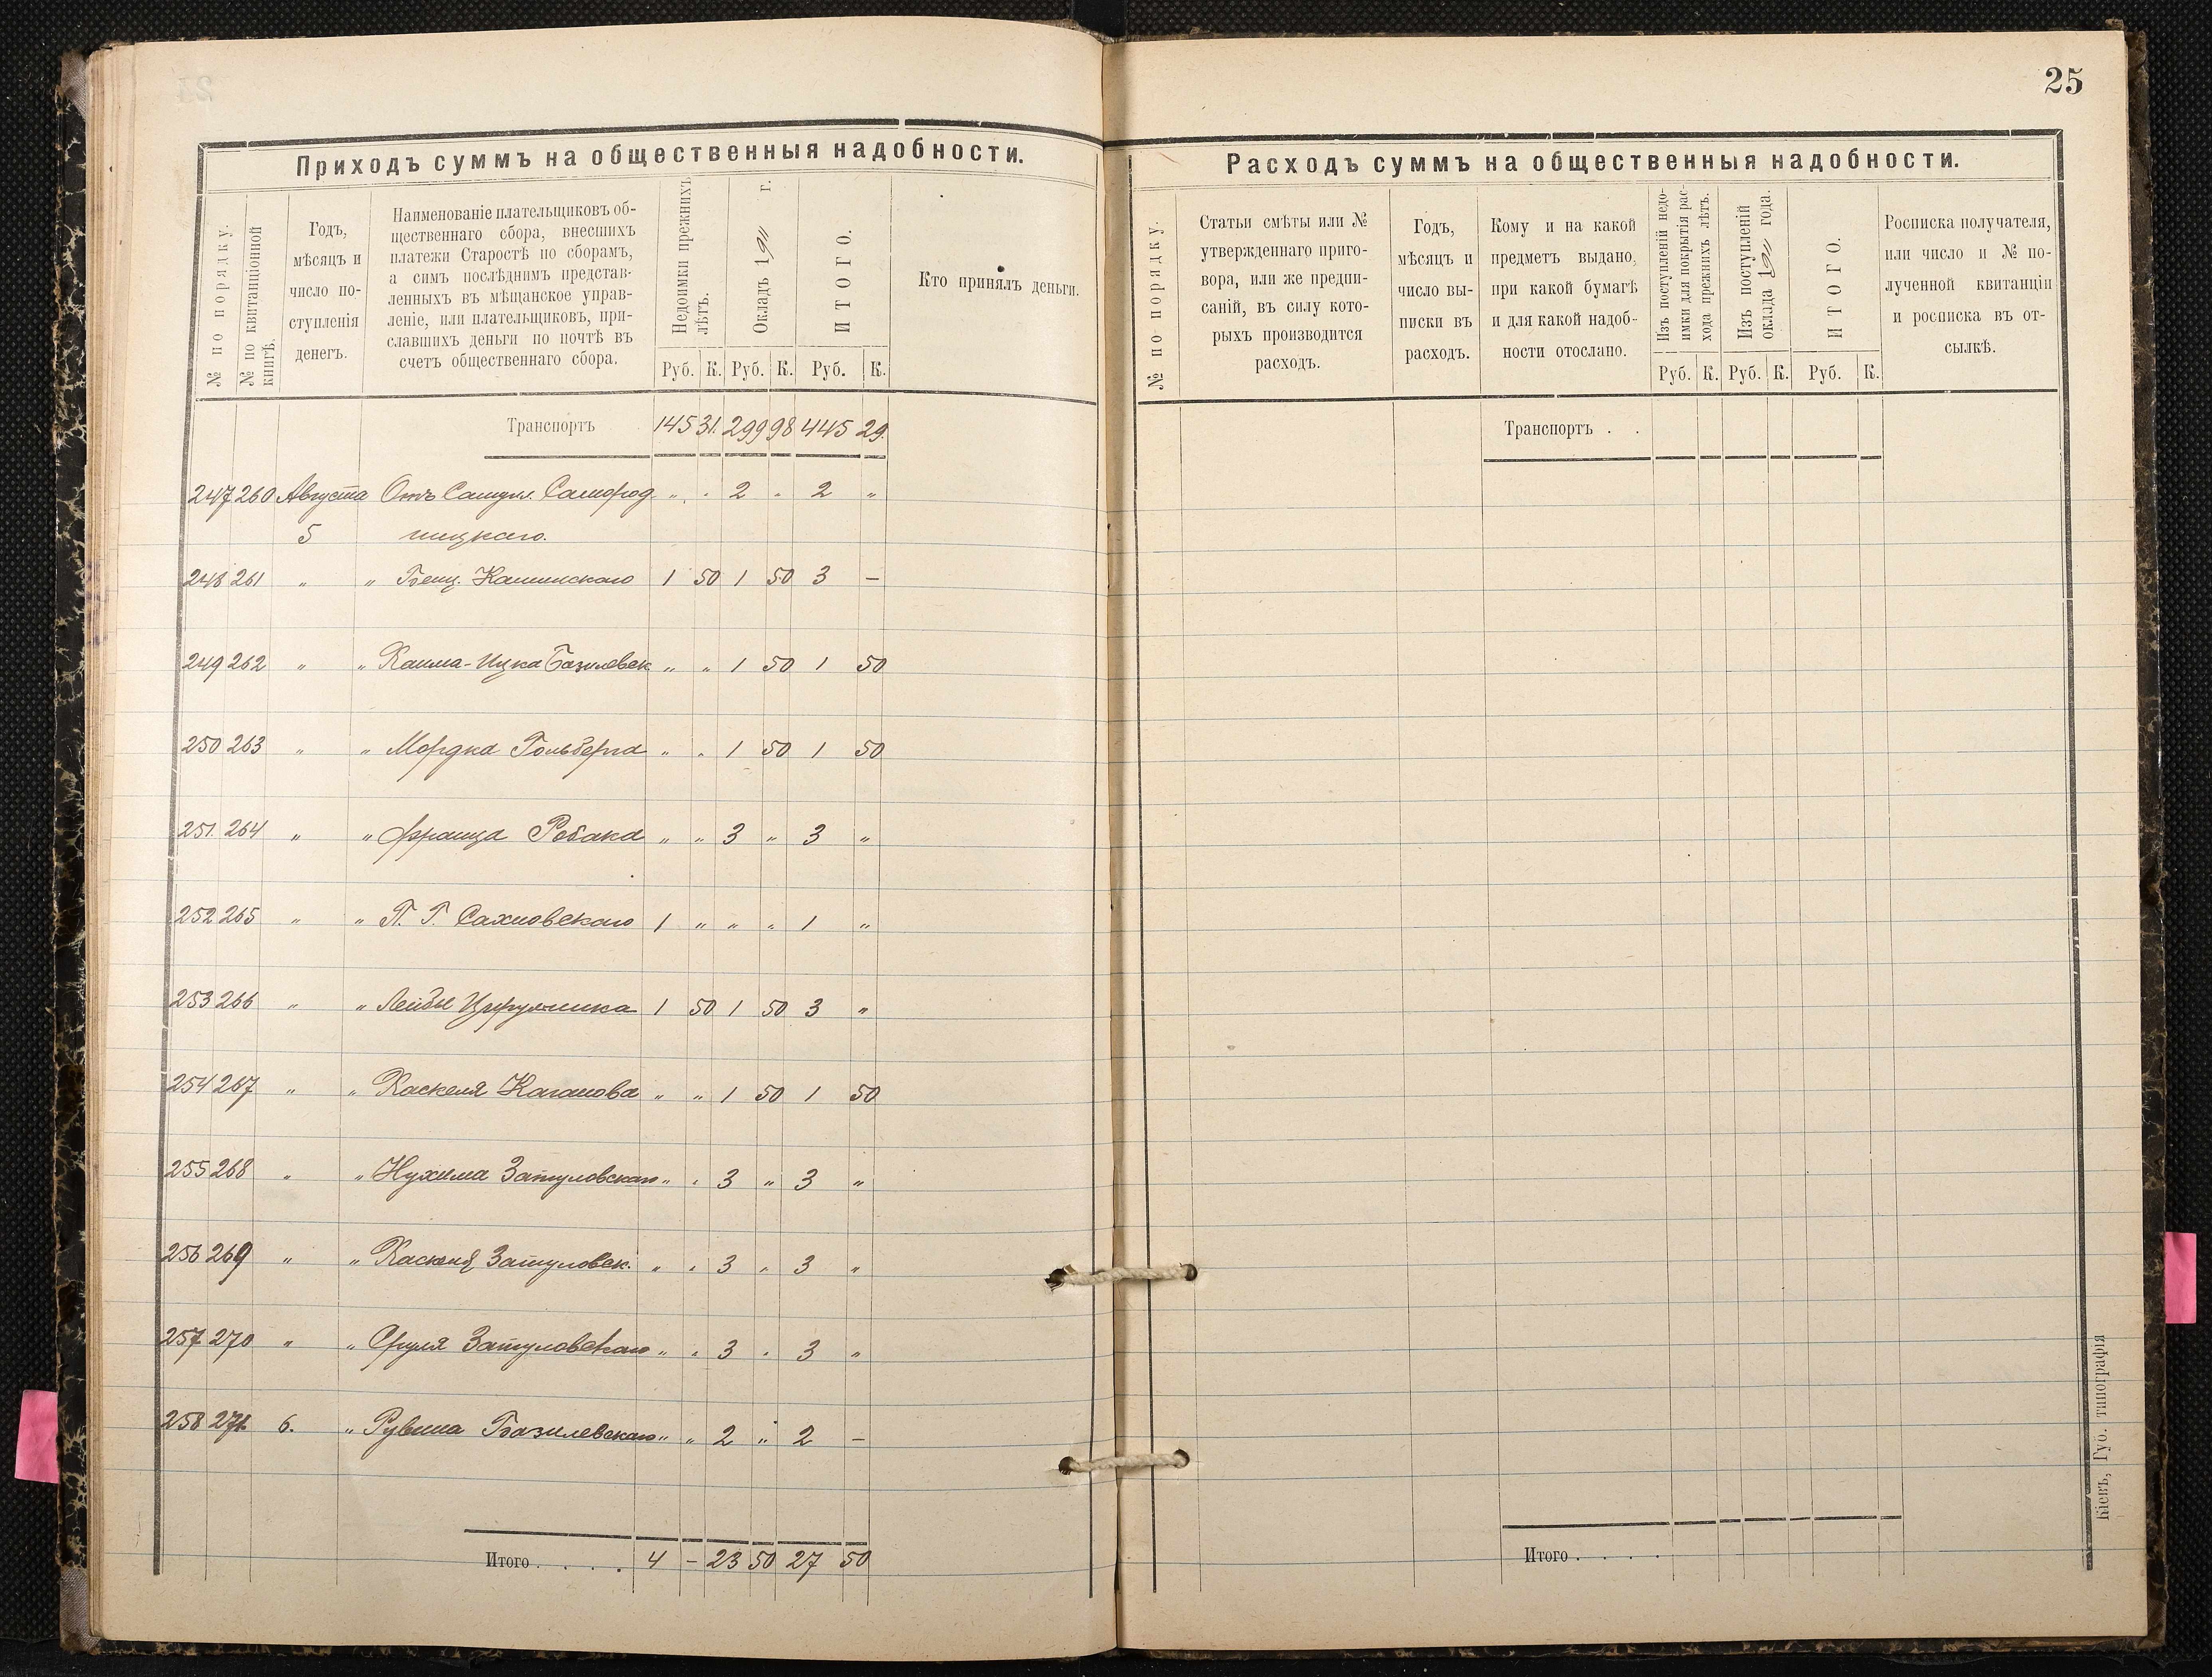 25
Приходъ суммъ на общественныя надобности.
№ по порядку.
№ по квитанціонной
книгѣ.
Годъ,
мѣсяцъ и
число по-
ступленія
денегъ.
Наименованіе плательщиковъ об-
щественнаго сбора, внесшихъ
платежи Старостѣ по сборамъ,
а симъ послѣднимъ представ-
ленныхъ въ мѣщанское управ-
леніе, или плательщиковъ, при-
славшихъ деньги по почтѣ въ
счетъ общественнаго сбора.
Недоимки прежнихъ
лѣтъ.
Окладъ 1911 г.
ИТОГО.
Кто принялъ деньги.
Руб. К. Руб. К. Руб. К.
Транспортъ 145 31. 299 98 445 29.
247 260 Августа Отъ Самул. Самород- " " 2 " 2 "
5 ницкаго.
248 261 " " Бенц. Каминскаго 1 50 1 50 3 —
249 262 " " Хаима-Ицка Базилевск " " 1 50 1 50
250 263 " " Мордка Гольберга " " 1 50 1 50
251. 264 " " Франца Робака " " 3 " 3 "
252 265 " " П. Г. Сахновскаго 1 " " " 1 "
253 266 " " Лейбы Цирульника 1 50 1 50 3 "
254 267 " " Хаскеля Каганова " " 1 50 1 50
255 268 " " Нухима Затуловскаго " " 3 " 3 "
256 269 " " Хаскеля Затуловск. " " 3 " 3 "
257 270 " " Сруля Затуловскаго " " 3 " 3 "
258 271. 6. " Рувина Базилевскаго " " 2 " 2 —
Итого . . . . 4 – 23 50 27 50
Расходъ суммъ на общественныя надобности.
№ по порядку.
Статьи смѣты или №
утвержденнаго приго-
вора, или же предпи-
саній, въ силу кото-
рыхъ производится
расходъ.
Годъ,
мѣсяцъ и
число вы-
писки въ
расходъ.
Кому и на какой
предметъ выдано,
при какой бумагѣ
и для какой надоб-
ности отослано.
Изъ поступленій недо-
имки для покрытія рас-
хода прежнихъ лѣтъ.
Изъ поступленій
оклада 1911 года.
ИТОГО.
Росписка получателя,
или число и № по-
лученной квитанціи
и росписка въ от-
сылкѣ.
Руб. К. Руб. К. Руб. К.
Транспортъ . .
Итого . . . .
Кіевъ, Губ. типографія